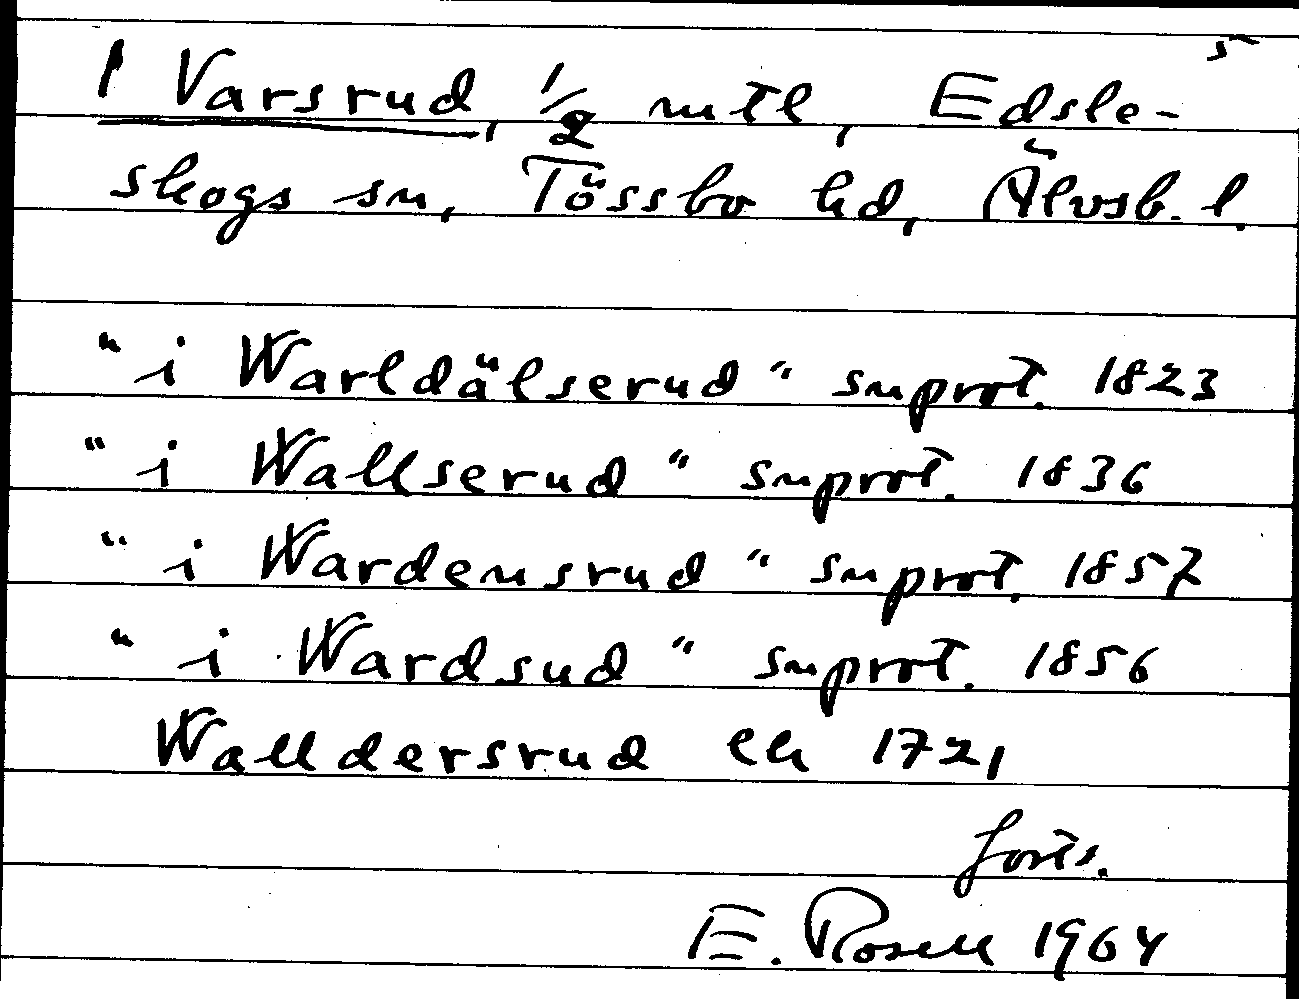 5
1 Varsrud, 1/2 mtl, Edsle-
skogs sn, Tössbo hd, Älvsb. l.
"i Warldälserud" snprot. 1823
"i Wallserud" snprot. 1836
"i Wardensrud" snprot. 1857
"i Wardsud" snprot. 1856
Walldersrud eh 1721
forts.
E. Rosell 1964